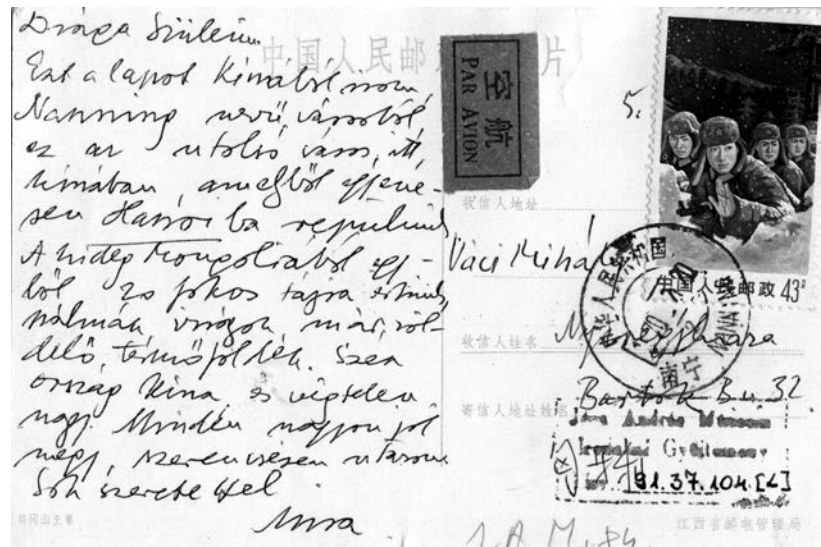 Drága Szüleim
Ezt a lapot Kínából írom,
Nanning nevű városból
ez az utolsó város, itt
kínában, amelyből egyene-
sen Hanoiba repülünk
A hideg Mongoliából egy-
ből 20 fokos tájra értünk
pálmák virágok már, zöl-
dellő, termőföldek. Szép
ország Kína, és végtelen
nagy Minden nagyon jól
megy, szerencsésen utazom
Sok szeretettel
中国人民邮
片
空航
PAR AVION
5.
收信人地址
Váci Mihály
中国人民邮政 43
中华人民共和国
南宁
NANNING
收信人姓名
Nyíregyháza
寄信人地址姓名
Bartók B. u. 32
Jósa András Múzeum
Irodalmi Gyűjtemény
91.37.104.[2]
井冈山主峰
江西省邮电管理局
J.A.M.